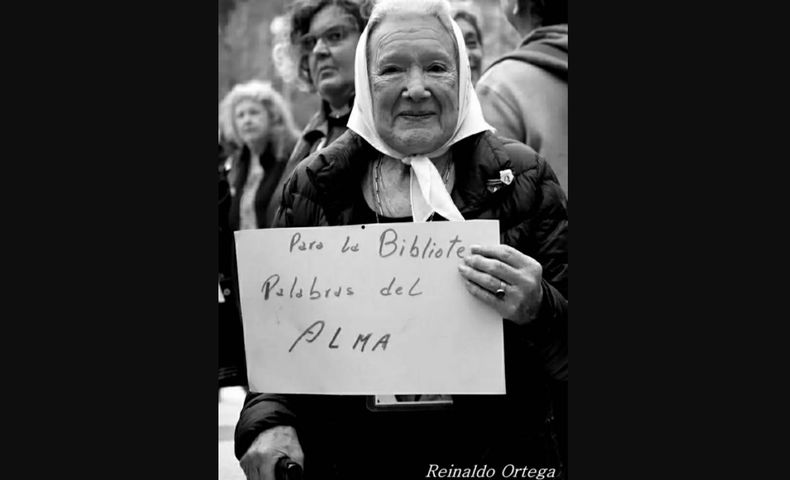 Para la Bibliote
Palabras del
ALMA
Reinaldo Ortega